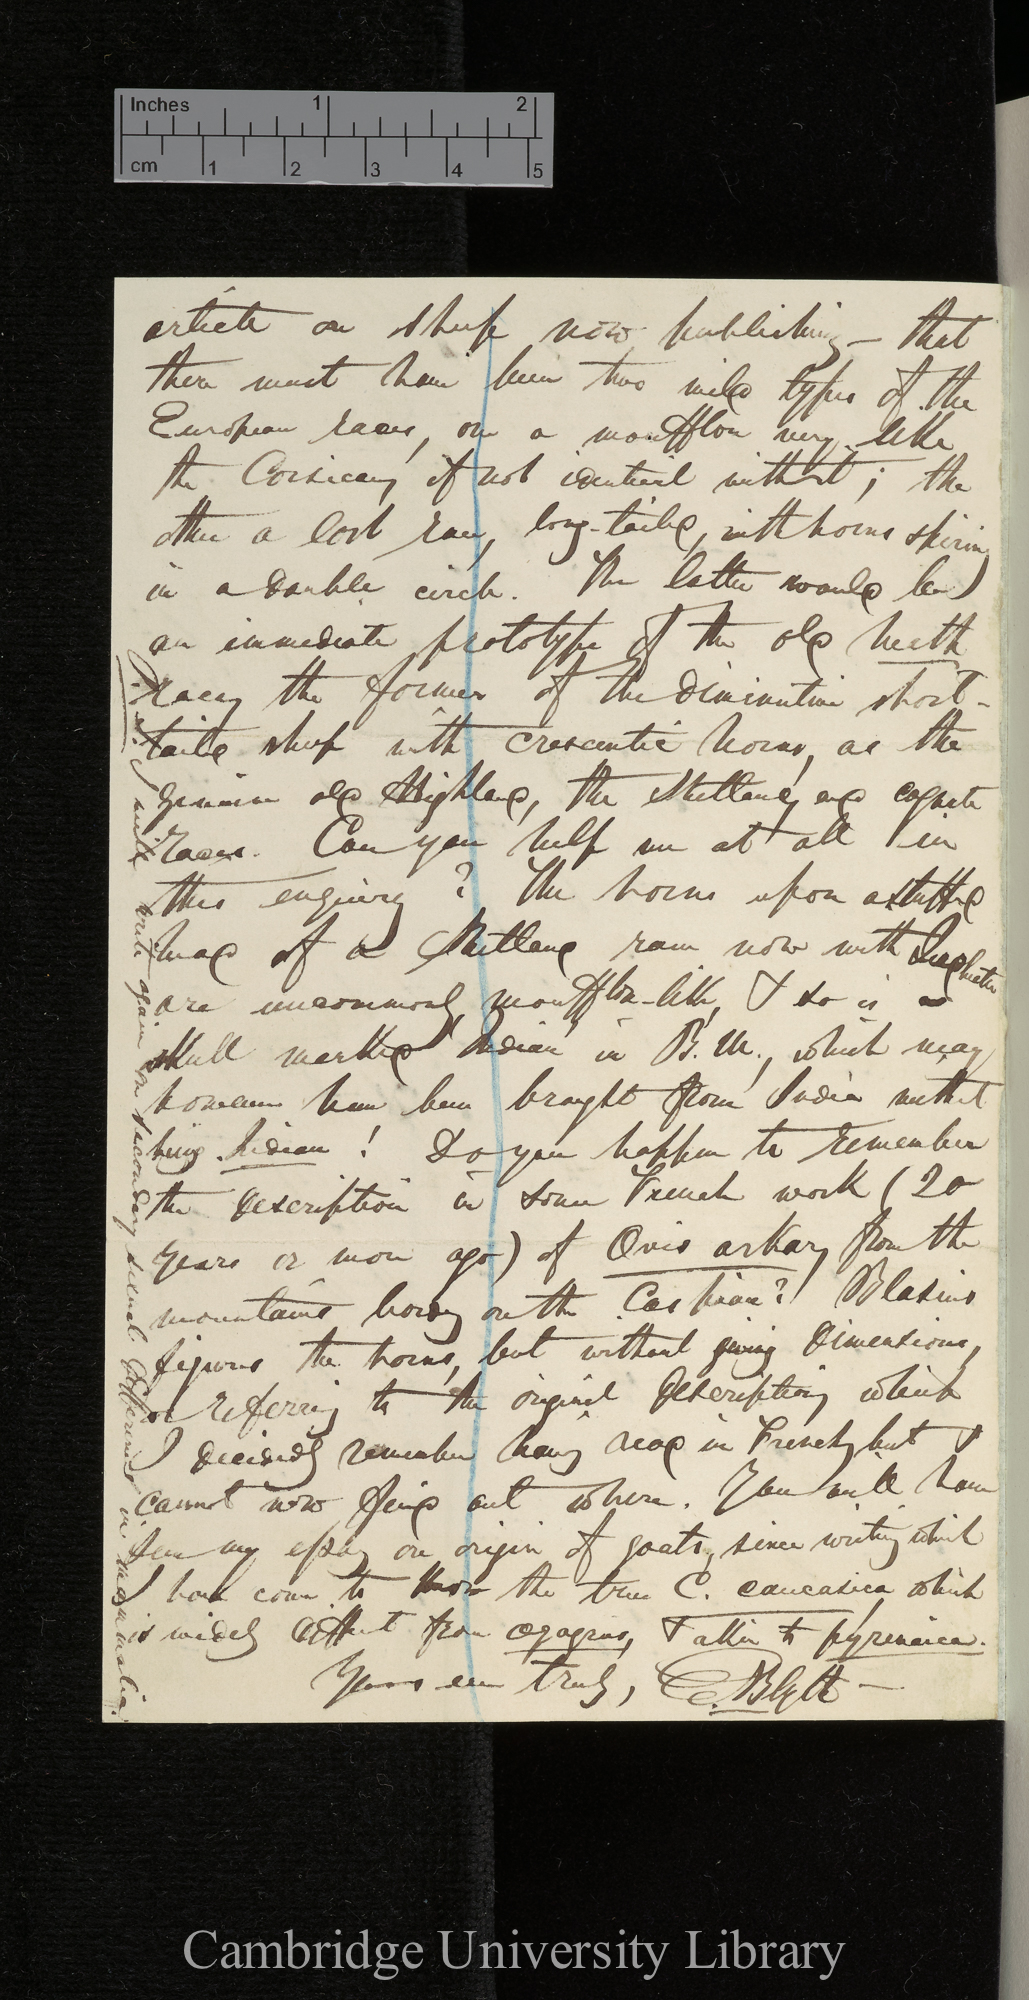 Inches 1 2
cm 1 2 3 4 5
article on sheep now publishing— that
there must have been two wild types of the
European races, one a moufflon very like
the Corsican, if not identical with it; the
other a lost race, long-tailed, with horns spiring
in a double circle. The latter would be
an immediate prototype of the old heath
races, the former of the diminutive short-
tailed sheep with crescentic horns, as the
genuine old Highland, the Shetland, and cognate
races. Can you help me at all in
this enquiry? The horns upon a stuffed
head of a Shetland ram now with Leadbeater
are uncommonly moufflon-like, & so is a
skull marked Indian in B. M., which may
however have been brought from India without
being Indian! Do you happen to remember
the description in some French work (20
years or more ago) of Ovis arkar, from the
mountains bordg on the Caspian? Blasius
figures the horns, but without giving dimensions,
or referring to the original description, which
I decidedly remember having read in French, but I
cannot now find out where. You will have
seen my essay on origin of goats, since writing which
I have come to know the true C. caucasica, which
is widely different from ægagrus, & allied to pyrenaica.
Yours ever truly, E. Blyth—
P. S. I will write again on secondary sexual differences in mammalia.
Cambridge University Library